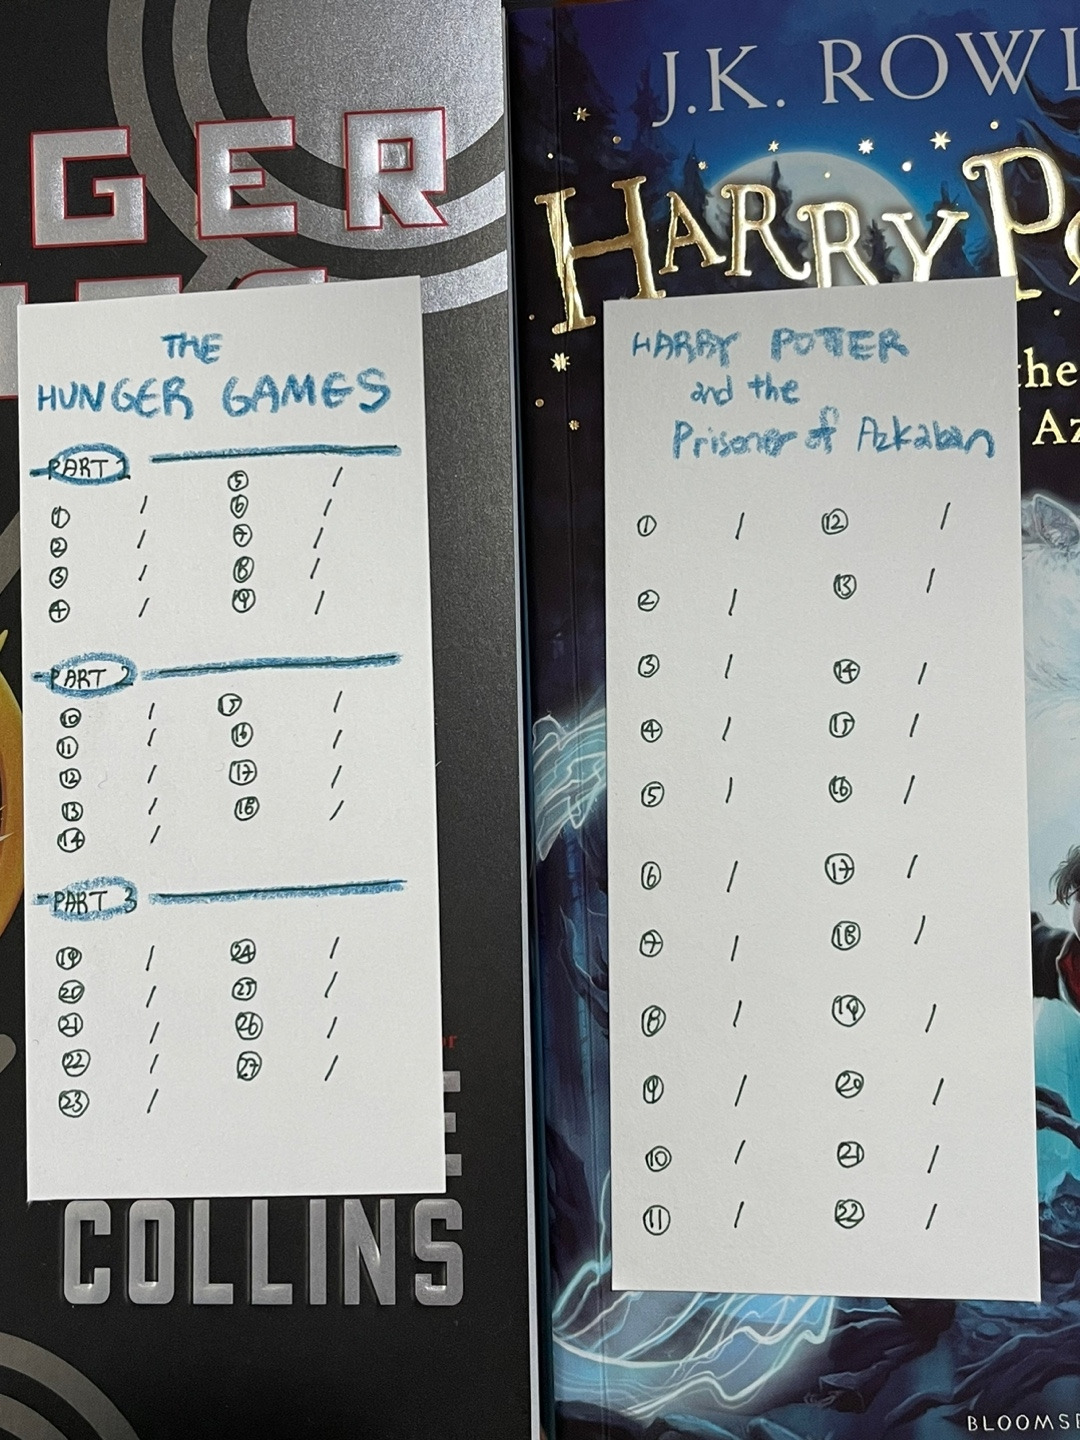 GER
COLLINS
THE
HUNGER GAMES
PART 1
① / ⑤ /
② / ⑥ /
③ / ⑦ /
④ / ⑧ /
⑨ /
PART 2
⑩ / ⑮ /
⑪ / ⑯ /
⑫ / ⑰ /
⑬ / ⑱ /
⑭ /
PART 3
⑲ / ㉔ /
⑳ / ㉕ /
㉑ / ㉖ /
㉒ / ㉗ /
㉓ /
J.K. ROWL
HARRY PO
the
Az
HARRY POTTER
and the
Prisoner of Azkaban
① / ⑫ /
② / ⑬ /
③ / ⑭ /
④ / ⑮ /
⑤ / ⑯ /
⑥ / ⑰ /
⑦ / ⑱ /
⑧ / ⑲ /
⑨ / ⑳ /
⑩ / ㉑ /
⑪ / ㉒ /
BLOOMSB